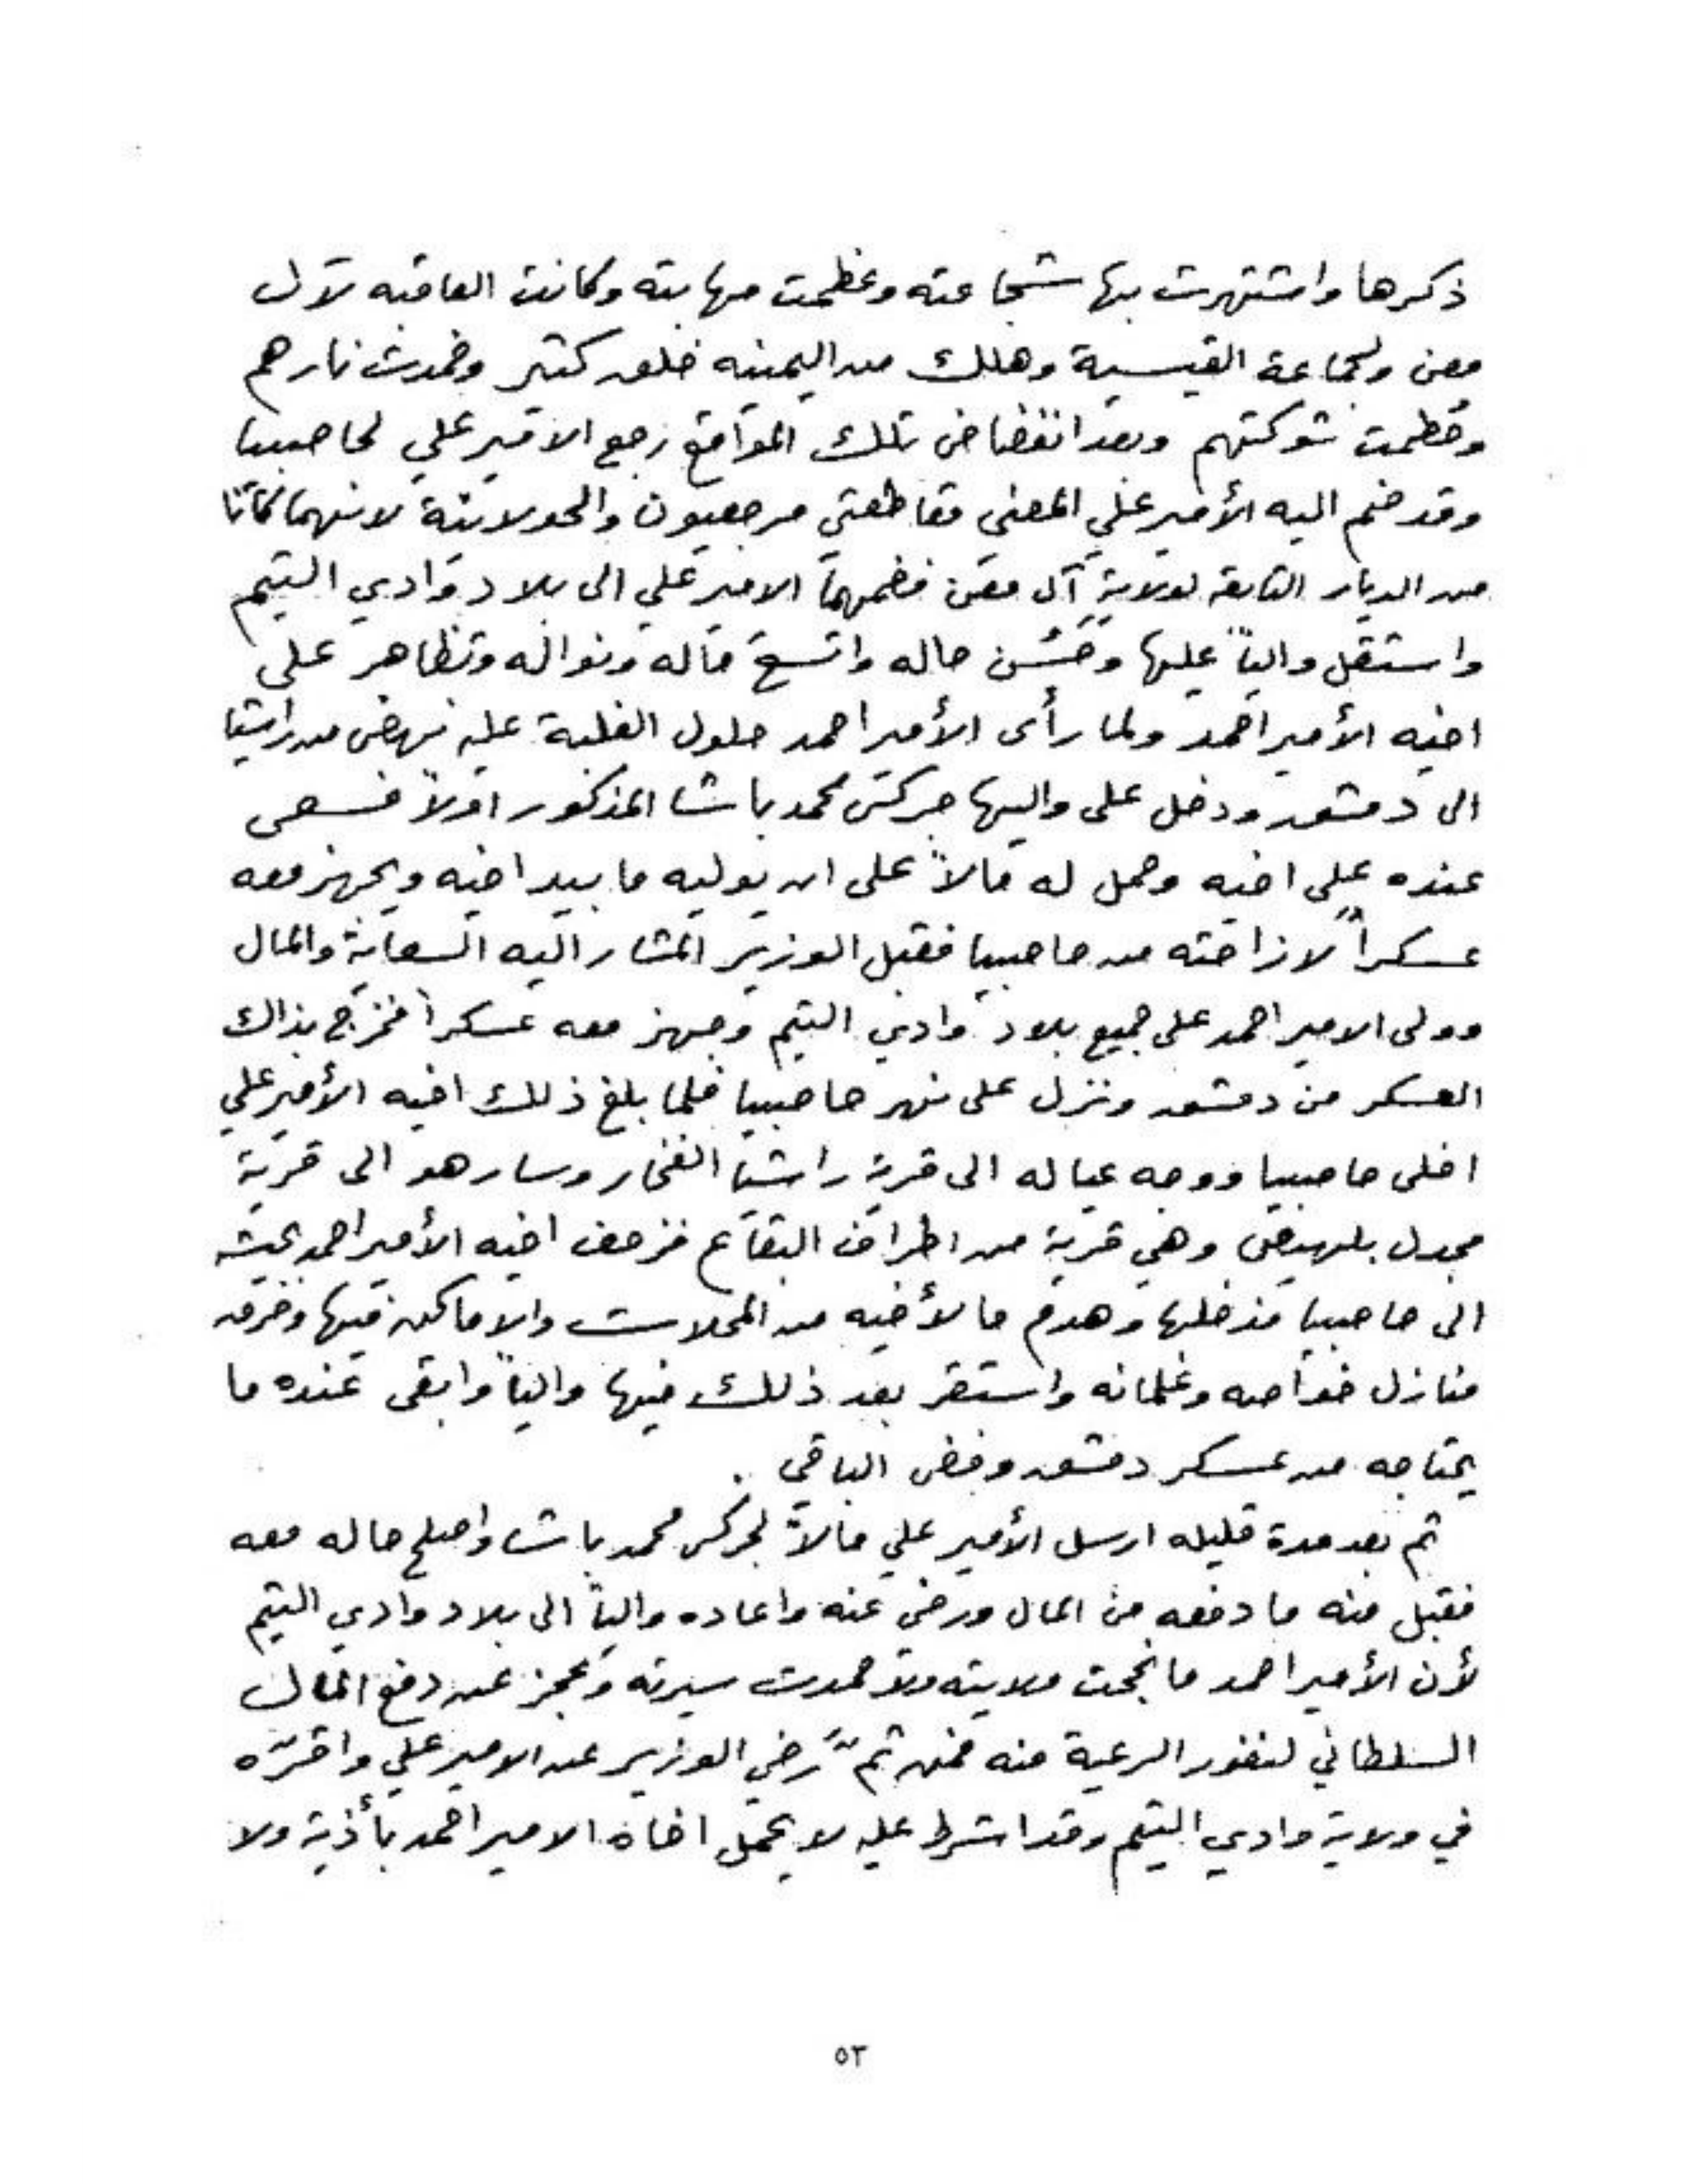 ذكرها واشتهرت بها شجاعته وعظمت مهابته وكانت العاقبه لآل
معن ولجماعة القيسية وهلك من اليمنيه خلق كثير وخمدت نارهم
وحُطمت شوكتهم وبعد انقضاض تلك المواقع رجع الامير علي لحاصبيا
وقد ضم اليه الأمير علي المعني مقاطعتي مرجعيون والحولانية لانهما كانتا
من الديار التابعه لولاية آل معن فضمهما الامير علي الى بلاد وادي التيم
واستقل والياً عليها وحَسُن حاله واتسع ماله ونواله وتظاهر على
اخيه الأمير احمد ولما رأى الأمير احمد حلول الغلبة عليه نهض من راشيا
الى دمشق ودخل على واليها جركس محمد باشا المذكور اولاً فسعى
عنده على اخيه وحمل له مالاً على ان يوليه ما بيد اخيه ويجهز معه
عسكراً لازاحته من حاصبيا فقبل الوزير المشار اليه السعاية والمال
وولى الامير احمد على جميع بلاد وادي التيم وجهز معه عسكراً فخرج بذاك
العسكر من دمشق ونزل على نهر حاصبيا فلما بلغ ذلك اخيه الأمير علي
اخلى حاصبيا ووجه عياله الى قرية راشيا الفخار وسار هو الى قرية
مجدل بلهيص وهي قرية من اطراف البقاع فزحف اخيه الأمير احمد بجيشه
الى حاصبيا فدخلها وهدم ما لأخيه من المحلات والاماكن فيها وخرق
منازل خواصه وغلمانه واستقر بعد ذلك فيها والياً وابقى عنده ما
يحتاجه من عسكر دمشق وفض الباقي .
ثم بعد مدة قليله ارسل الأمير علي مالاً لجركس محمد باشا واصلح حاله معه
فقبل منه ما دفعه من المال ورضي عنه واعاده والياً الى بلاد وادي التيم
لأن الأمير احمد ما نجحت ولايته ولا حمدت سيرته وعجز عن دفع المال
السلطاني لنفور الرعية منه فمن ثمّ رضي الوزير عن الامير علي واقرّه
في ولاية وادي التيم وقد اشرط عليه لا يحمل اخاه الامير احمد بأذية ولا
٥٣